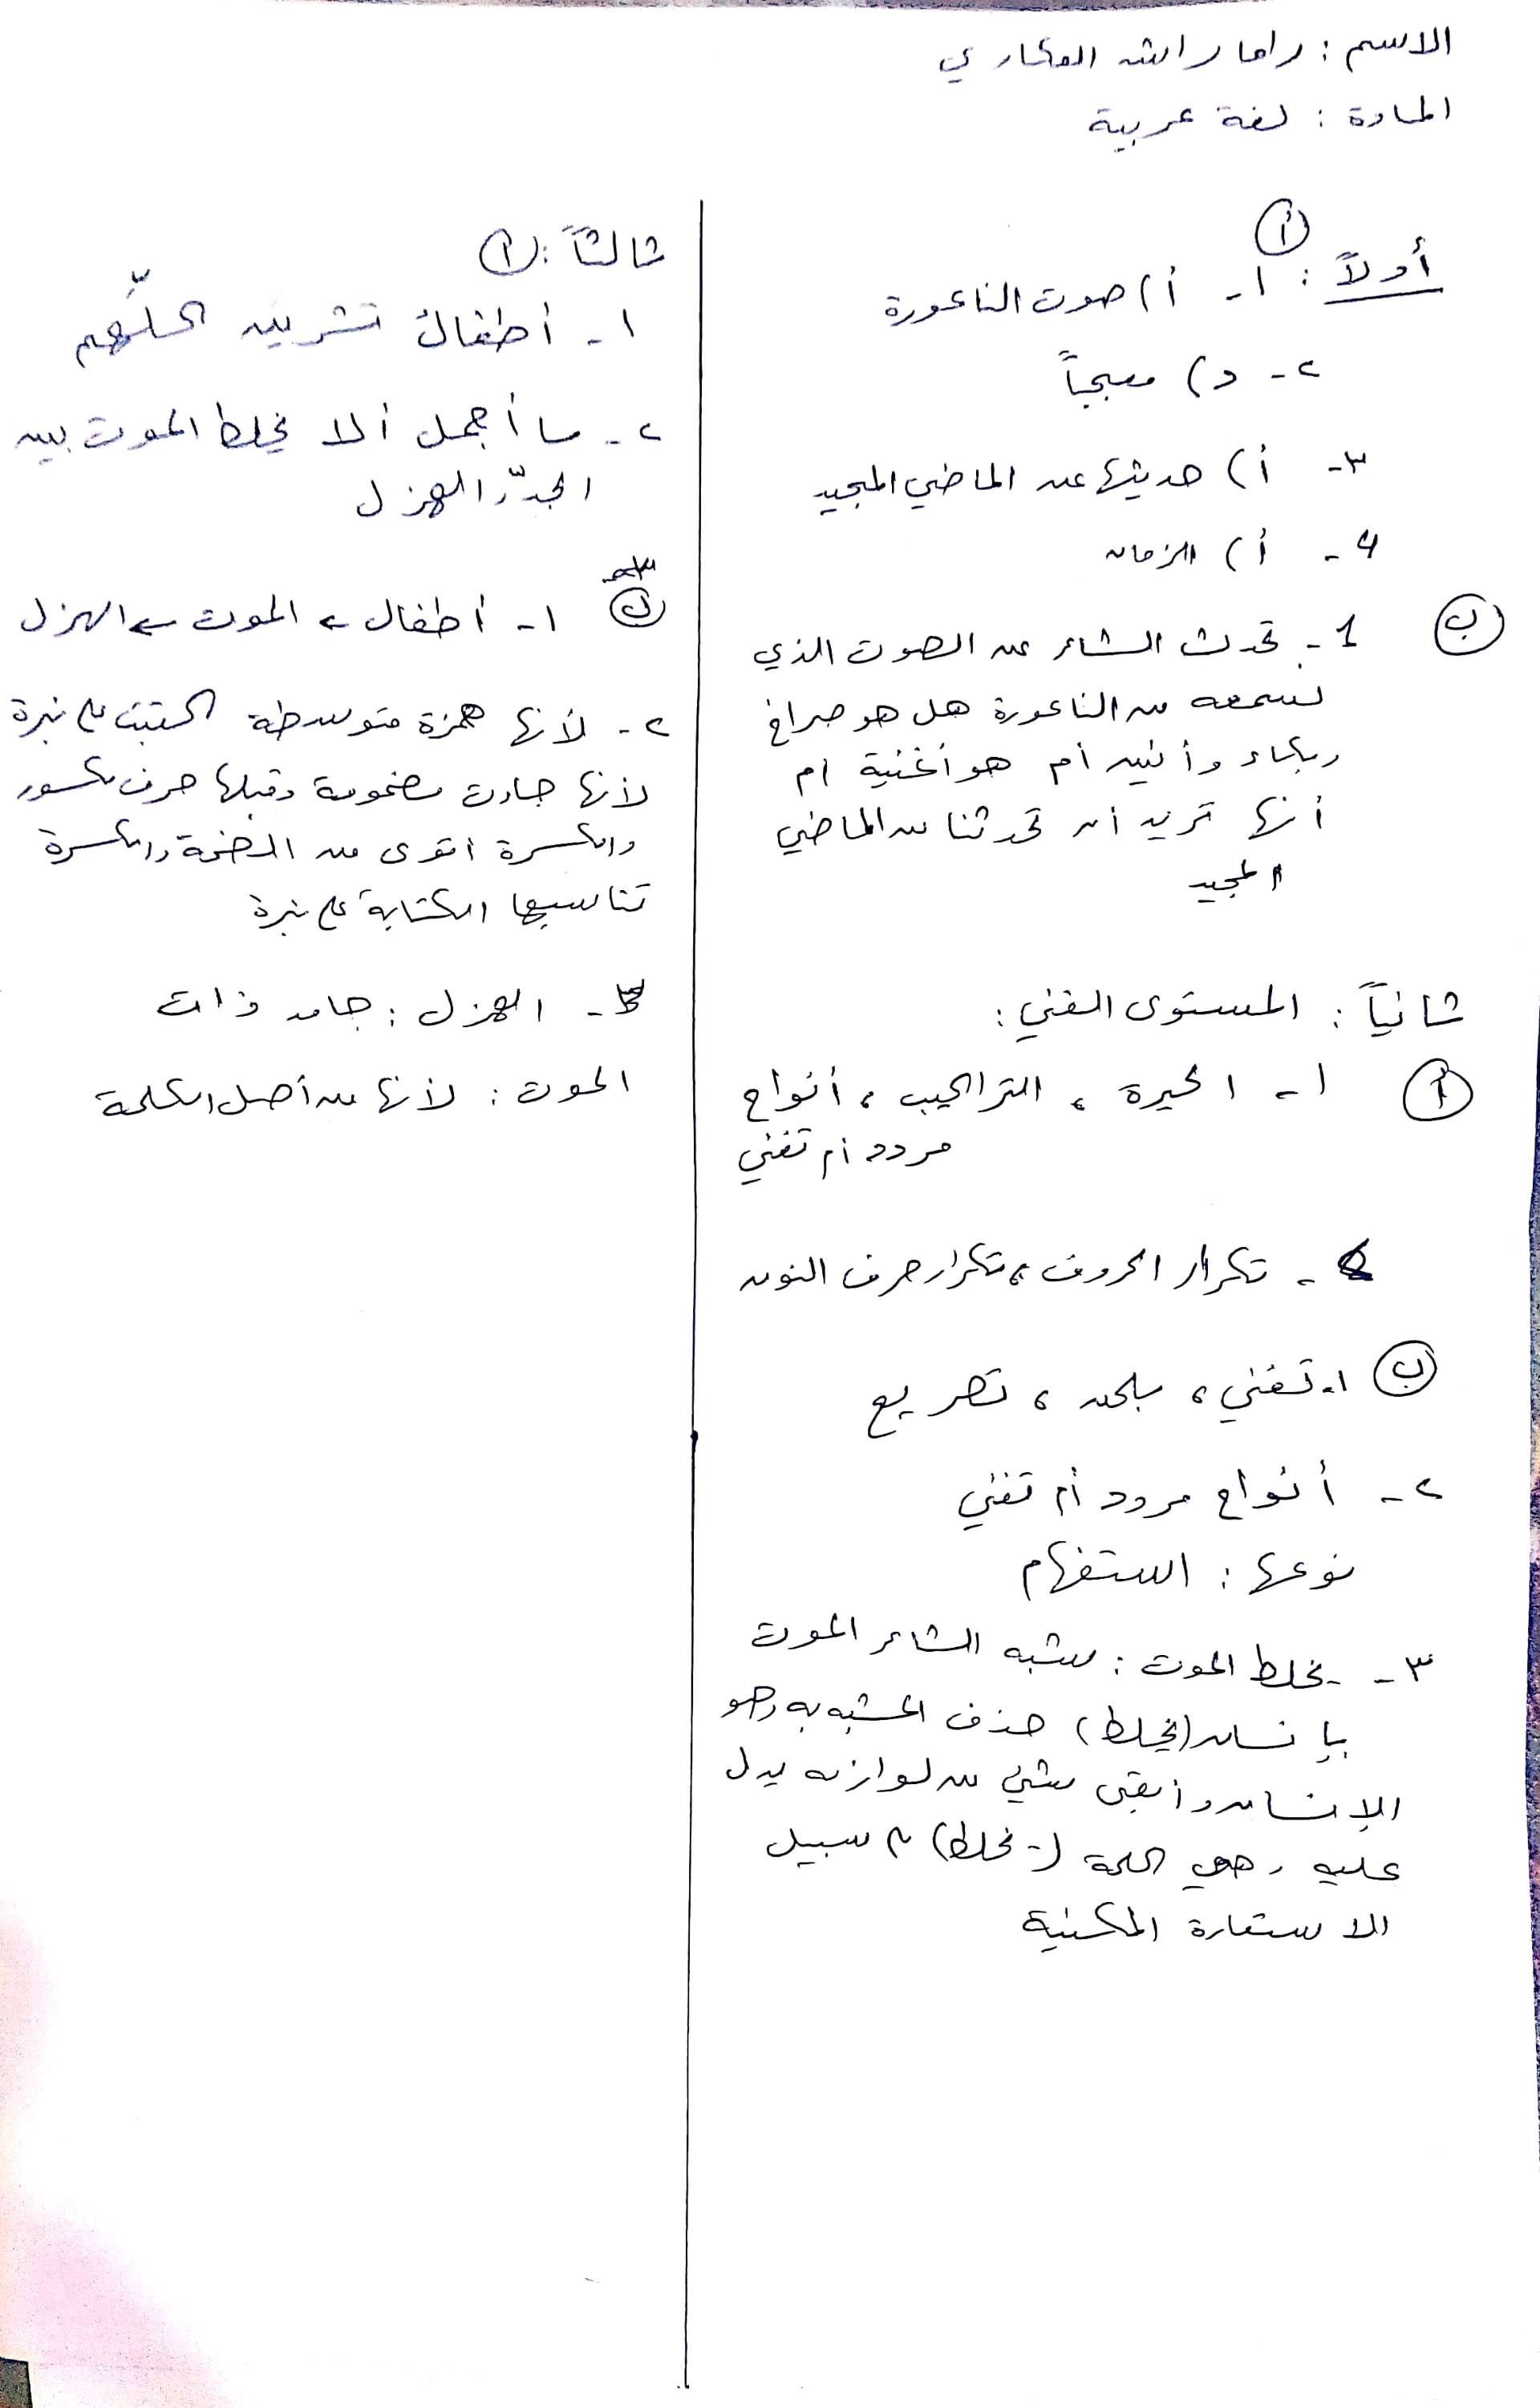 الاسم : راما راشد العكاري
المادة : لغة عربية
أولاً : أ
١- أ) صوت الناعورة
٢- د) معجباً
٣- أ) حديثها عن الماضي المجيد
٤- أ) الزمان
ب 1- تحدث الشاعر عن الصوت الذي
نسمعه من الناعورة هل هو صراخ
وبكاء وأنين أم هو أغنية ام
أنها تريد أن تحدثنا عن الماضي
المجيد
ثانياً : المستوى الفني :
أ ١- الحيرة ، التراكيب ، أنواح
مردد أم تغني
٢- تكرار الحروف ، تكرار حرف النون
ب ١- تغني ، بلحن ، تصريع
٢- أنواح مردد أم تغني
نوعها : استفهام
٣- يخلط الموت : شبه الشاعر الموت
بإنسان (يخلط) حذف المشبه به وهو
الإنسان وأبقى شيئ من لوازمه يدل
عليه وهي كلمة (يخلط) سبيل
الاستعارة المكنية
ثالثاً : ١
١- أطفال تشرين كلّهم
٢- ما أجمل ألا يخلط الموت بين
الجدّ والهزل
ب ١- أطفال ← الموت ← الهزل
٢- لأنها همزة متوسطة كتبت على نبرة
لأنها جاءت مضمومة وقبلها حرف مكسور
والكسرة أقوى من الضمة والكسرة
تناسبها الكتابة على نبرة
٣- الهزل : جامد ذات
الموت : لأنها من أصل الكلمة